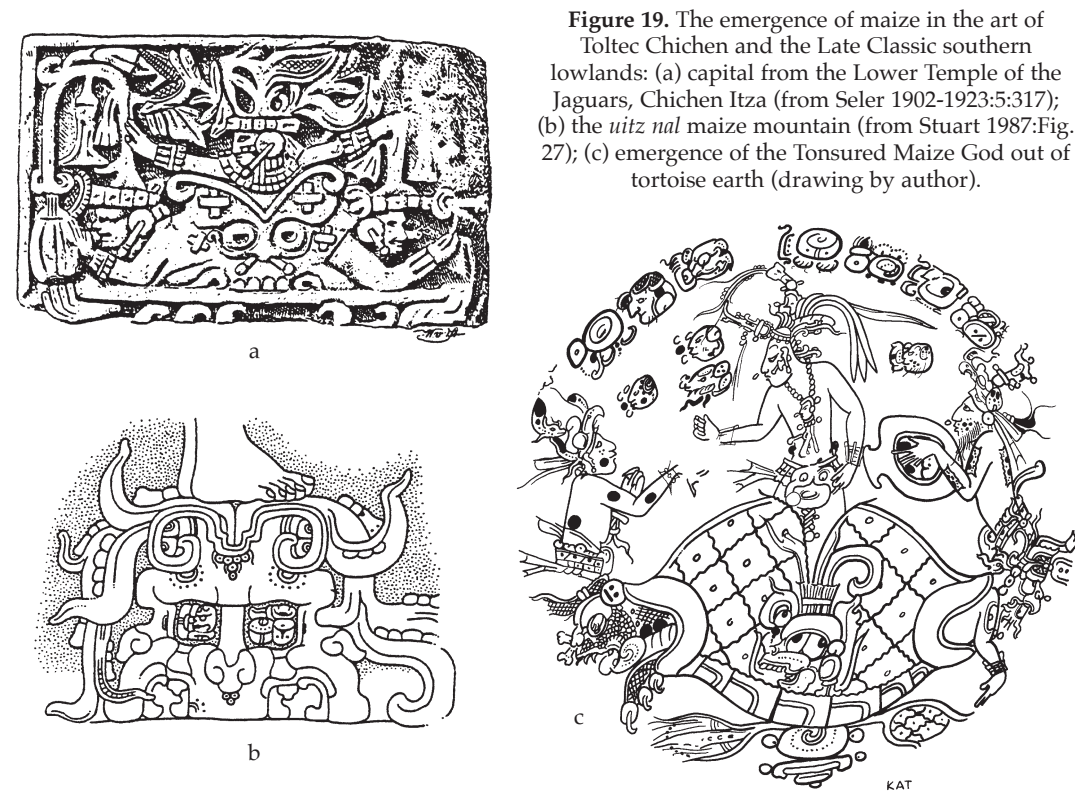 Figure 19. The emergence of maize in the art of
Toltec Chichen and the Late Classic southern
lowlands: (a) capital from the Lower Temple of the
Jaguars, Chichen Itza (from Seler 1902-1923:5:317);
(b) the uitz nal maize mountain (from Stuart 1987:Fig.
27); (c) emergence of the Tonsured Maize God out of
tortoise earth (drawing by author).
a
b
c
KAT